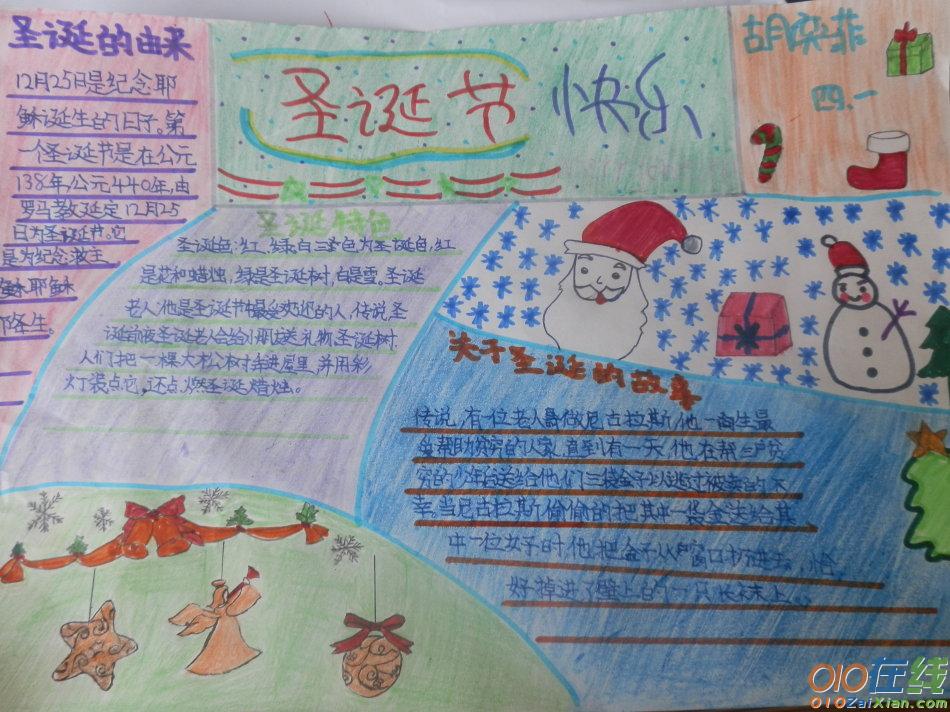 圣诞的由来
12月25日是纪念耶
稣诞生的日子。第
一个圣诞节是在公元
138年,公元440年,由
罗马教廷定12月25
日为圣诞节。它
是为纪念救主
稣耶稣
降生。
圣诞节
快乐
四、一
圣诞特色
圣诞色:红、绿、白三色为圣诞色,红
是花和蜡烛,绿是圣诞树,白是雪。圣诞
老人:他是圣诞节最受欢迎的人,传说圣
诞前夜圣诞老人会给小朋送礼物.圣诞树:
人们把一棵大松树弄进屋里,并用彩
灯装点它,还点燃圣诞蜡烛。
关于圣诞的故事
传说,有一位老人叫做尼古拉斯,他一生最
爱帮助贫穷的人家,直到有一天,他在帮三户贫
穷的少年后送给他们三袋金子以逃过被卖的不
幸。当尼古拉斯偷偷的把其中一袋金送给其
中一位女子时,他把金子从窗口扔进去,恰
好掉进了壁上的一只长袜上。
010在线
010ZaiXian.com